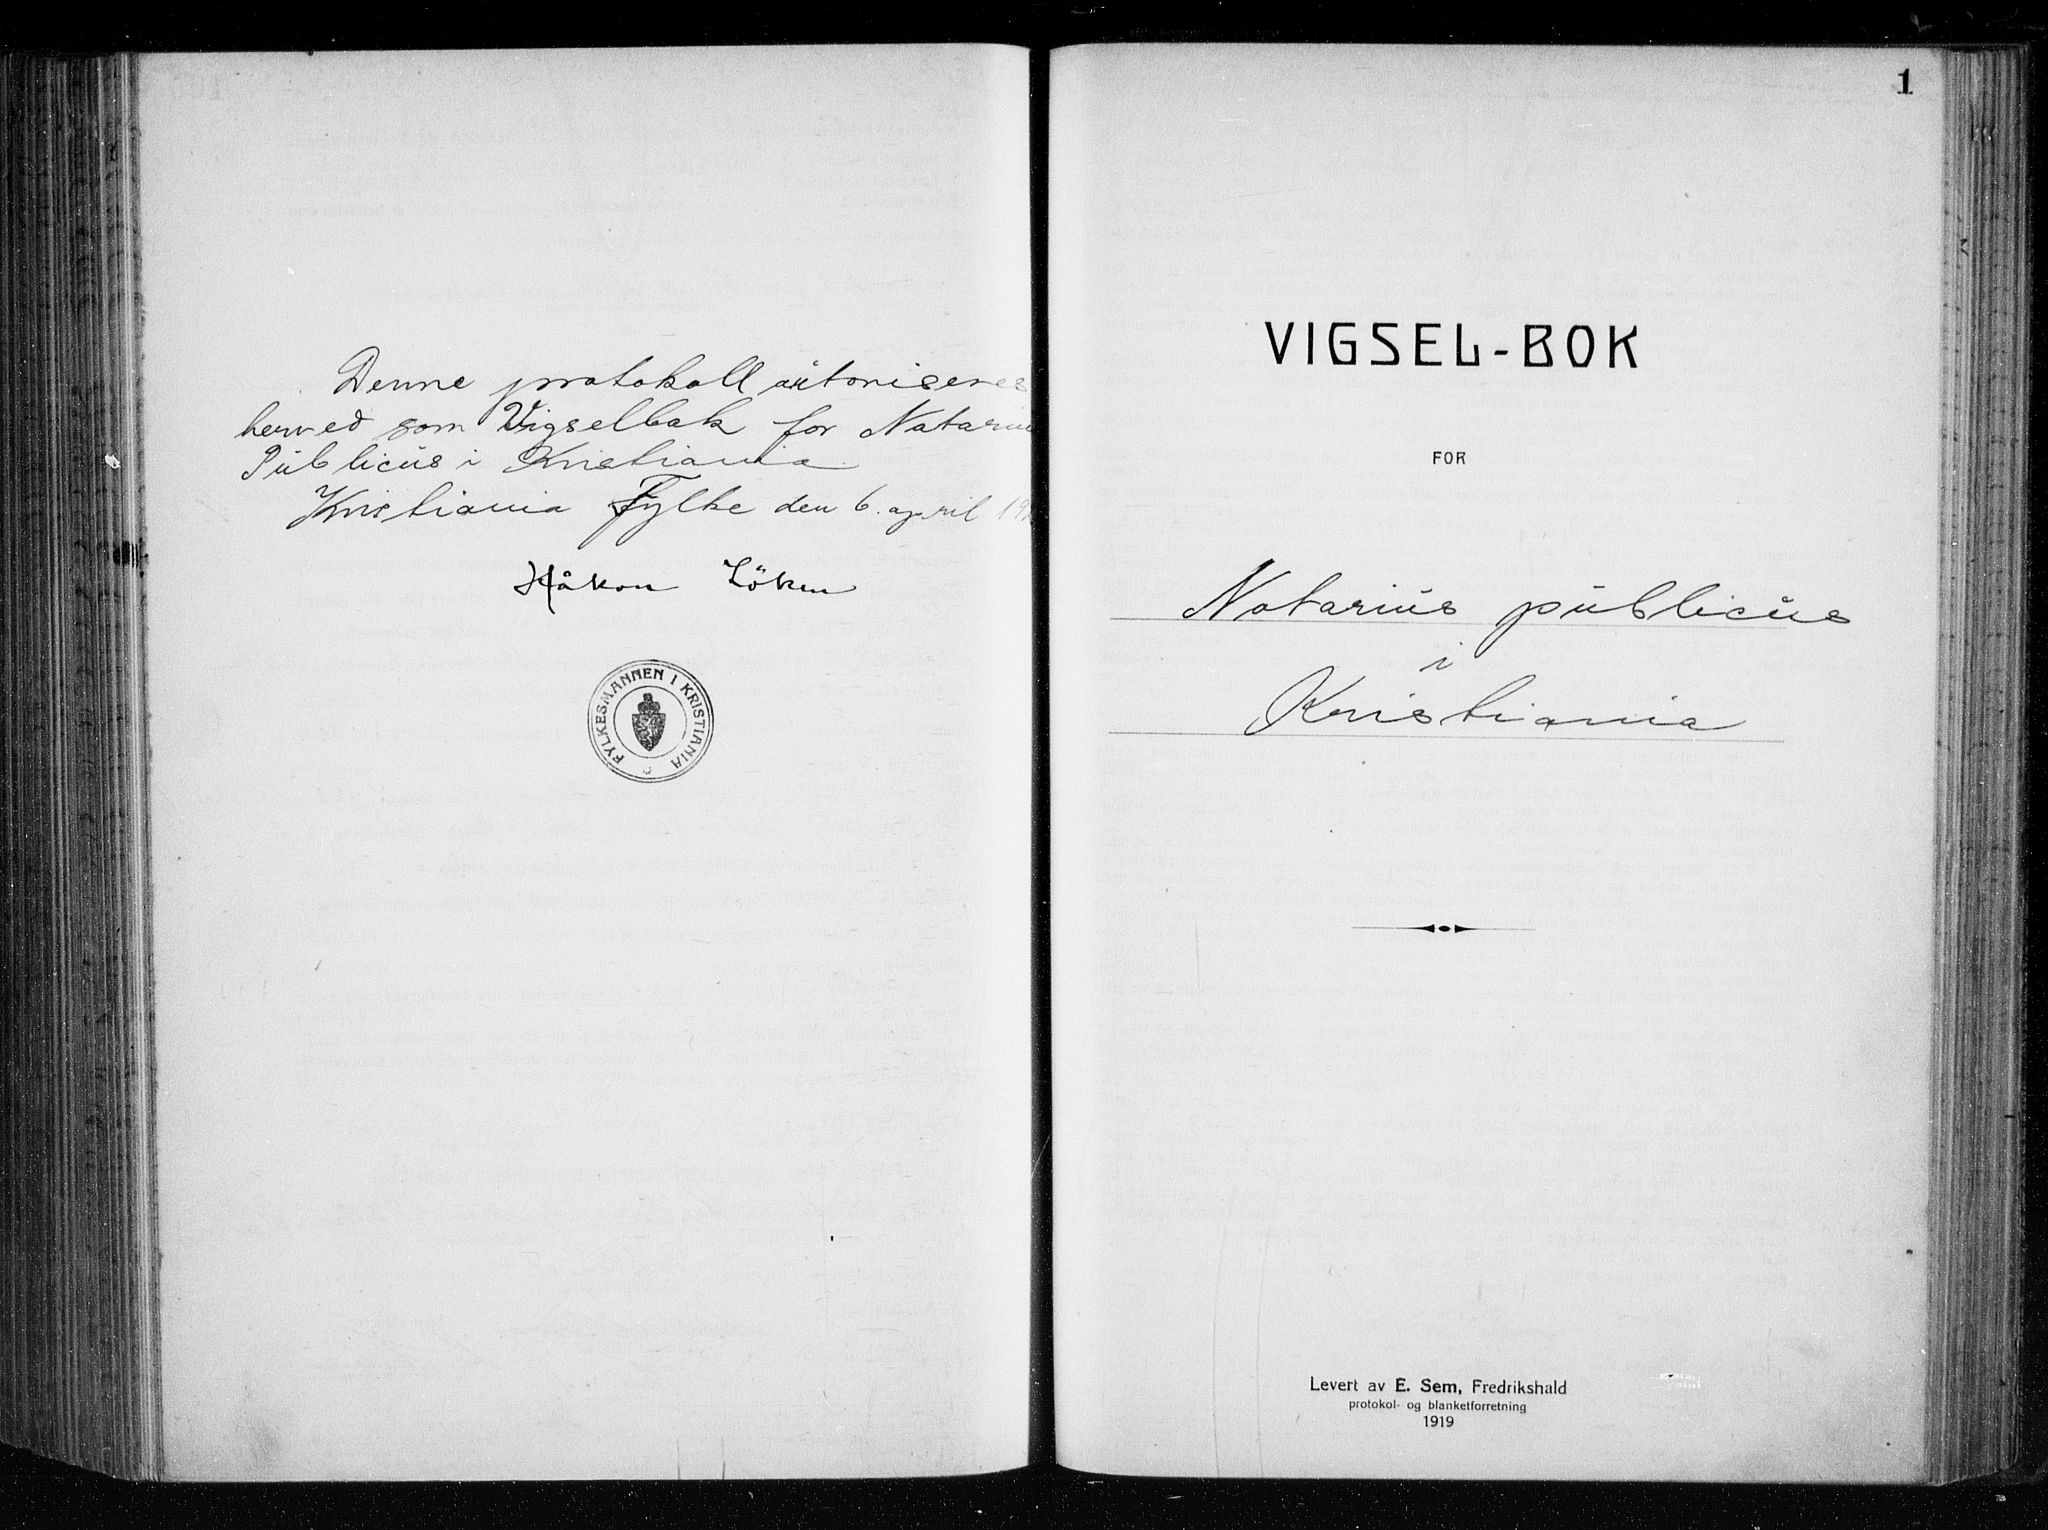 Denne protokoll autoriseres
herved som Vigselbok for
Publicus i Kristiania.
Kristiania Fylke den 6. april
Håkon Löken
FYLKESMANNEN I KRISTIANIA
1
VIGSEL-BOK
FOR
Notarius publicus
i
Kristiania
Levert av E. Sem, Fredrikshald
protokol- og blanketforretning
1919